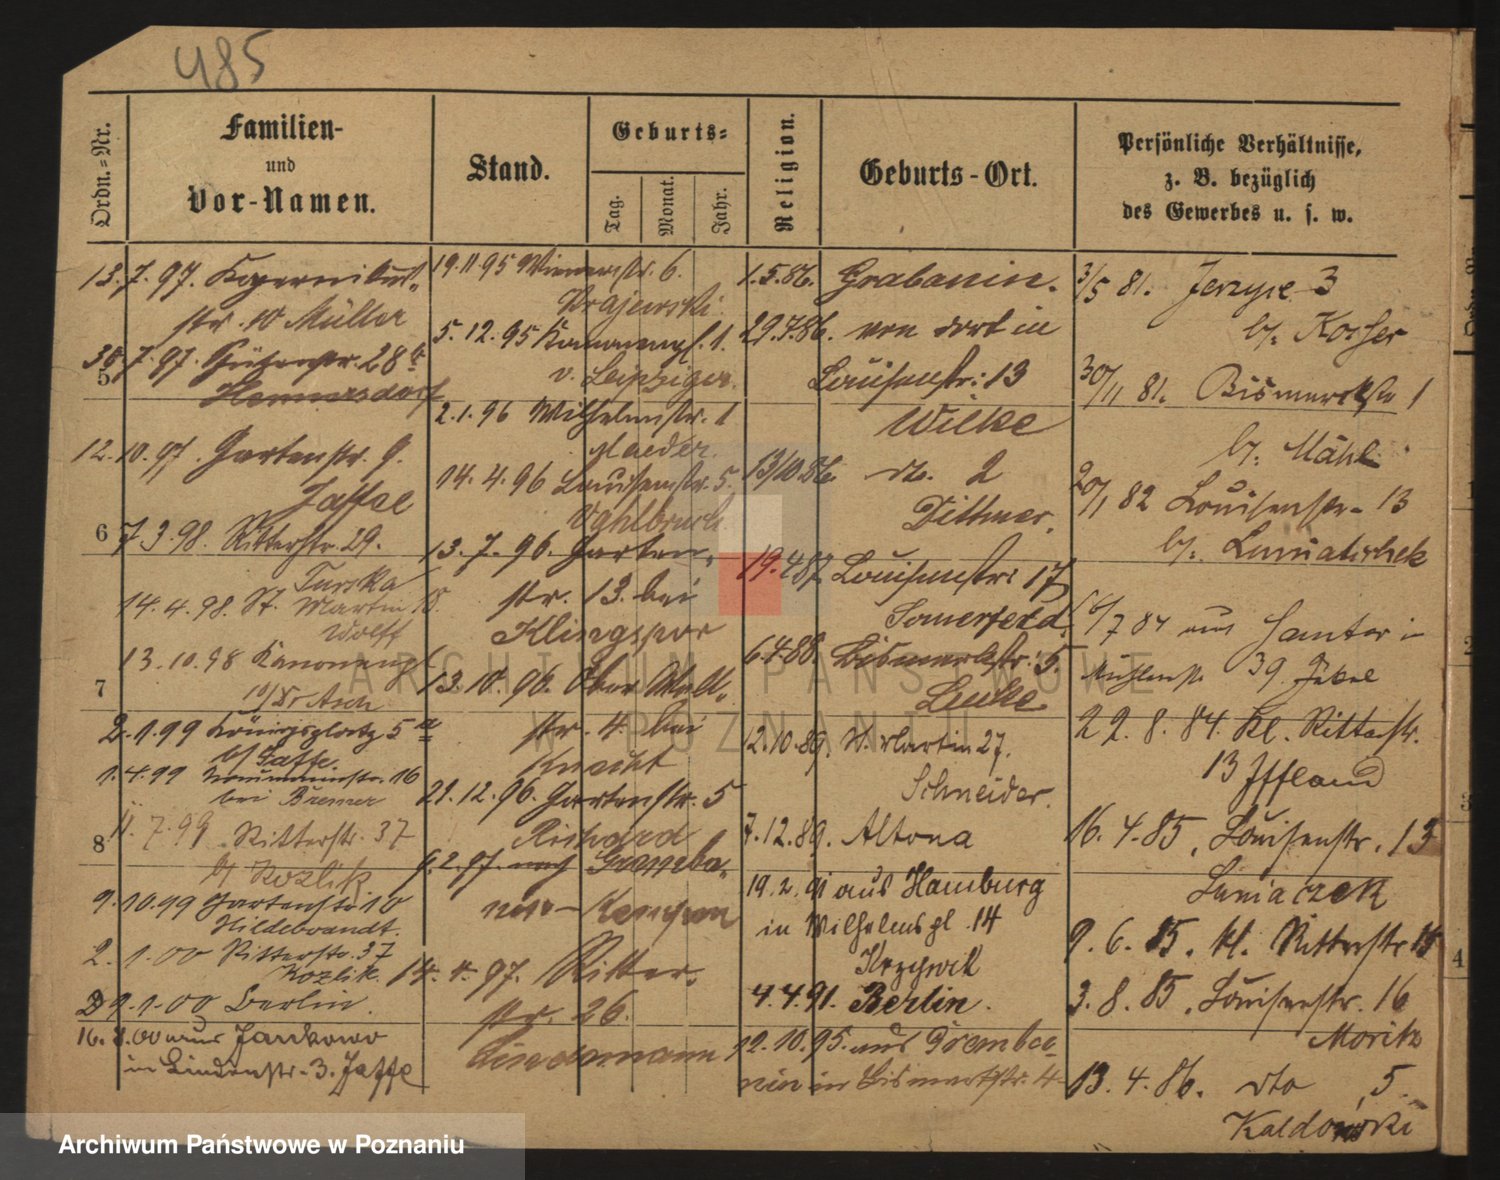 485
Ordn.-Nr.
Familien-
und
Vor-Namen.
Stand.
Geburts-
Tag.
Monat.
Jahr.
Religion.
Geburts-Ort.
Persönliche Verhältnisse,
z. B. bezüglich
des Gewerbes u. s. w.
13.7.97. Kopernikus-
str. 10 Müller
30.7.97. 28a
5
Hennersdorf
12.10.97. Gartenstr. 9.
Jaffae
6
7.3.98. Ritterstr. 29.
Turska
14.4.98. St. Martin 18.
Wolff
13.10.98 Kanonenpl
10/Dr Asch
7
2.1.99 Königsplatz 5a
b/ Jaffe.
1.4.99 16
bei Bremer
11.7.99. Ritterstr. 37
8
b/ Kozlik
9.10.99 Gartenstr. 10
Hildebrandt.
2.1.00 Ritterstr. 37
Kozlik.
9.1.00 Berlin.
16.8.00 aus Jankowo
in Lindenstr. 3. Jaffe
19.11.95 Wienerstr. 6.
Krajewski.
5.12.95 Kanonenpl. 1.
v. Leipziger.
2.1.96 Wilhelmstr. 1
Maeder.
14.4.96 Louisenstr. 5.
13.7.96. Garten-
str. 13. bei
Klingspor
13.10.96. Ober Wall-
str. 4. bei
Knecht
21.12.96. Gartenstr. 5
Richard
6.2.97. nach Grembo-
nin - Kempen
14.4.97. Ritter-
str. 26.
Lindemann
1.5.86. Grabonin.
29.7.86. von dort in
Louisenstr. 13
Wilke
13/10.86. dto. 2
Dittmer.
19.4.87. Louisenstr. 17
Somerfeld.
6.4.88. Bismarkstr. 5.
Lucke.
12.10.89. St. Martin 27.
Schneider.
7.12.89. Altona
19.2.91 aus Hamburg
in Wilhelmspl. 14
Krzywik
4.4.91. Berlin.
12.10.95. aus Grembo-
nin in Bismarkstr. 4
3/5 81. Jerzyce 3
b/. Kosfer
30/11 81. Bismarckstr 1
b/. Mähl
20/1 82 Louisenstr. 13
b/. Luniatschek
16/7 84 aus Samter in
Mühlenstr. 39. Jäkel
22.8.84. Kl. Ritterstr.
13 Iffland
16.4.85. Louisenstr. 13
Luniaczek
9.6.85. kl. Ritterstr 15
3.8.85. Louisenstr. 16
Moritz
13.4.86. dto 5.
Kaldowski
ARCHIWUM PAŃSTWOWE
W POZNANIU
Archiwum Państwowe w Poznaniu